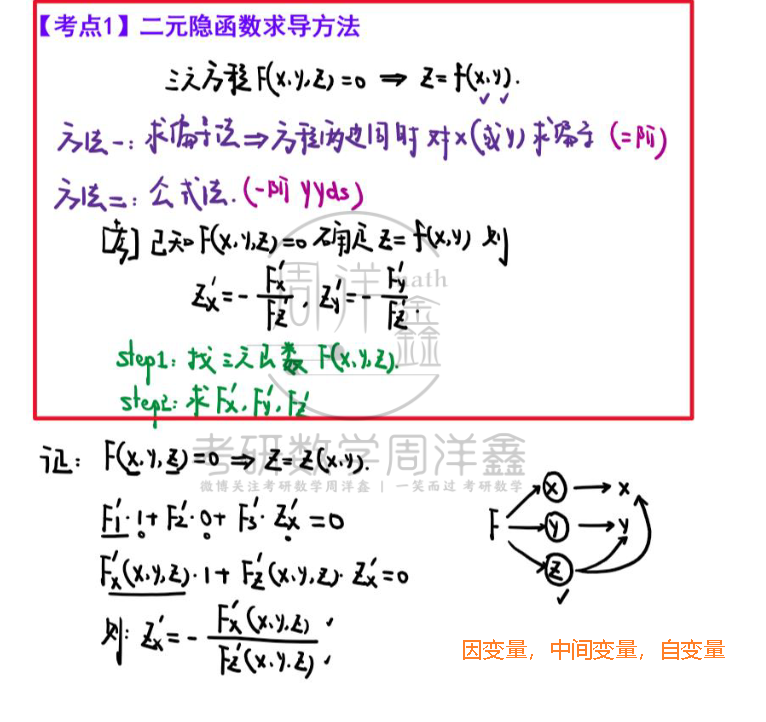 【考点1】二元隐函数求导方法
三元方程 F(x,y,z)=0 ⇒ z=f(x,y).
方法一: 求偏导法 ⇒ 方程两边同时对x(或y)求偏导 (二阶)
方法二: 公式法. (一阶 yyds)
[考] 已知F(x,y,z)=0 确定 z=f(x,y) 则
Z'x = - F'x / F'z , Z'y = - F'y / F'z .
step1: 找三元函数 F(x,y,z).
step2: 求 F'x, F'y, F'z
周洋鑫
math
考研数学周洋鑫
微博关注考研数学周洋鑫 | 一笑而过 考研数学
证: F(x,y,z)=0 ⇒ z=z(x,y).
F'1·1+F'2·0+F'3·Z'x=0
F'x(x,y,z)·1+F'z(x,y,z)·Z'x=0
则: Z'x = - F'x(x,y,z) / F'z(x,y,z)
F x y z x y
因变量，中间变量，自变量